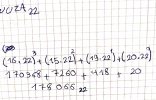 VUZA 22
(16.22³)+(15.22²)+(19.22¹)+(20.22⁰)
170368 + 7260 + 418 + 20
178066 22